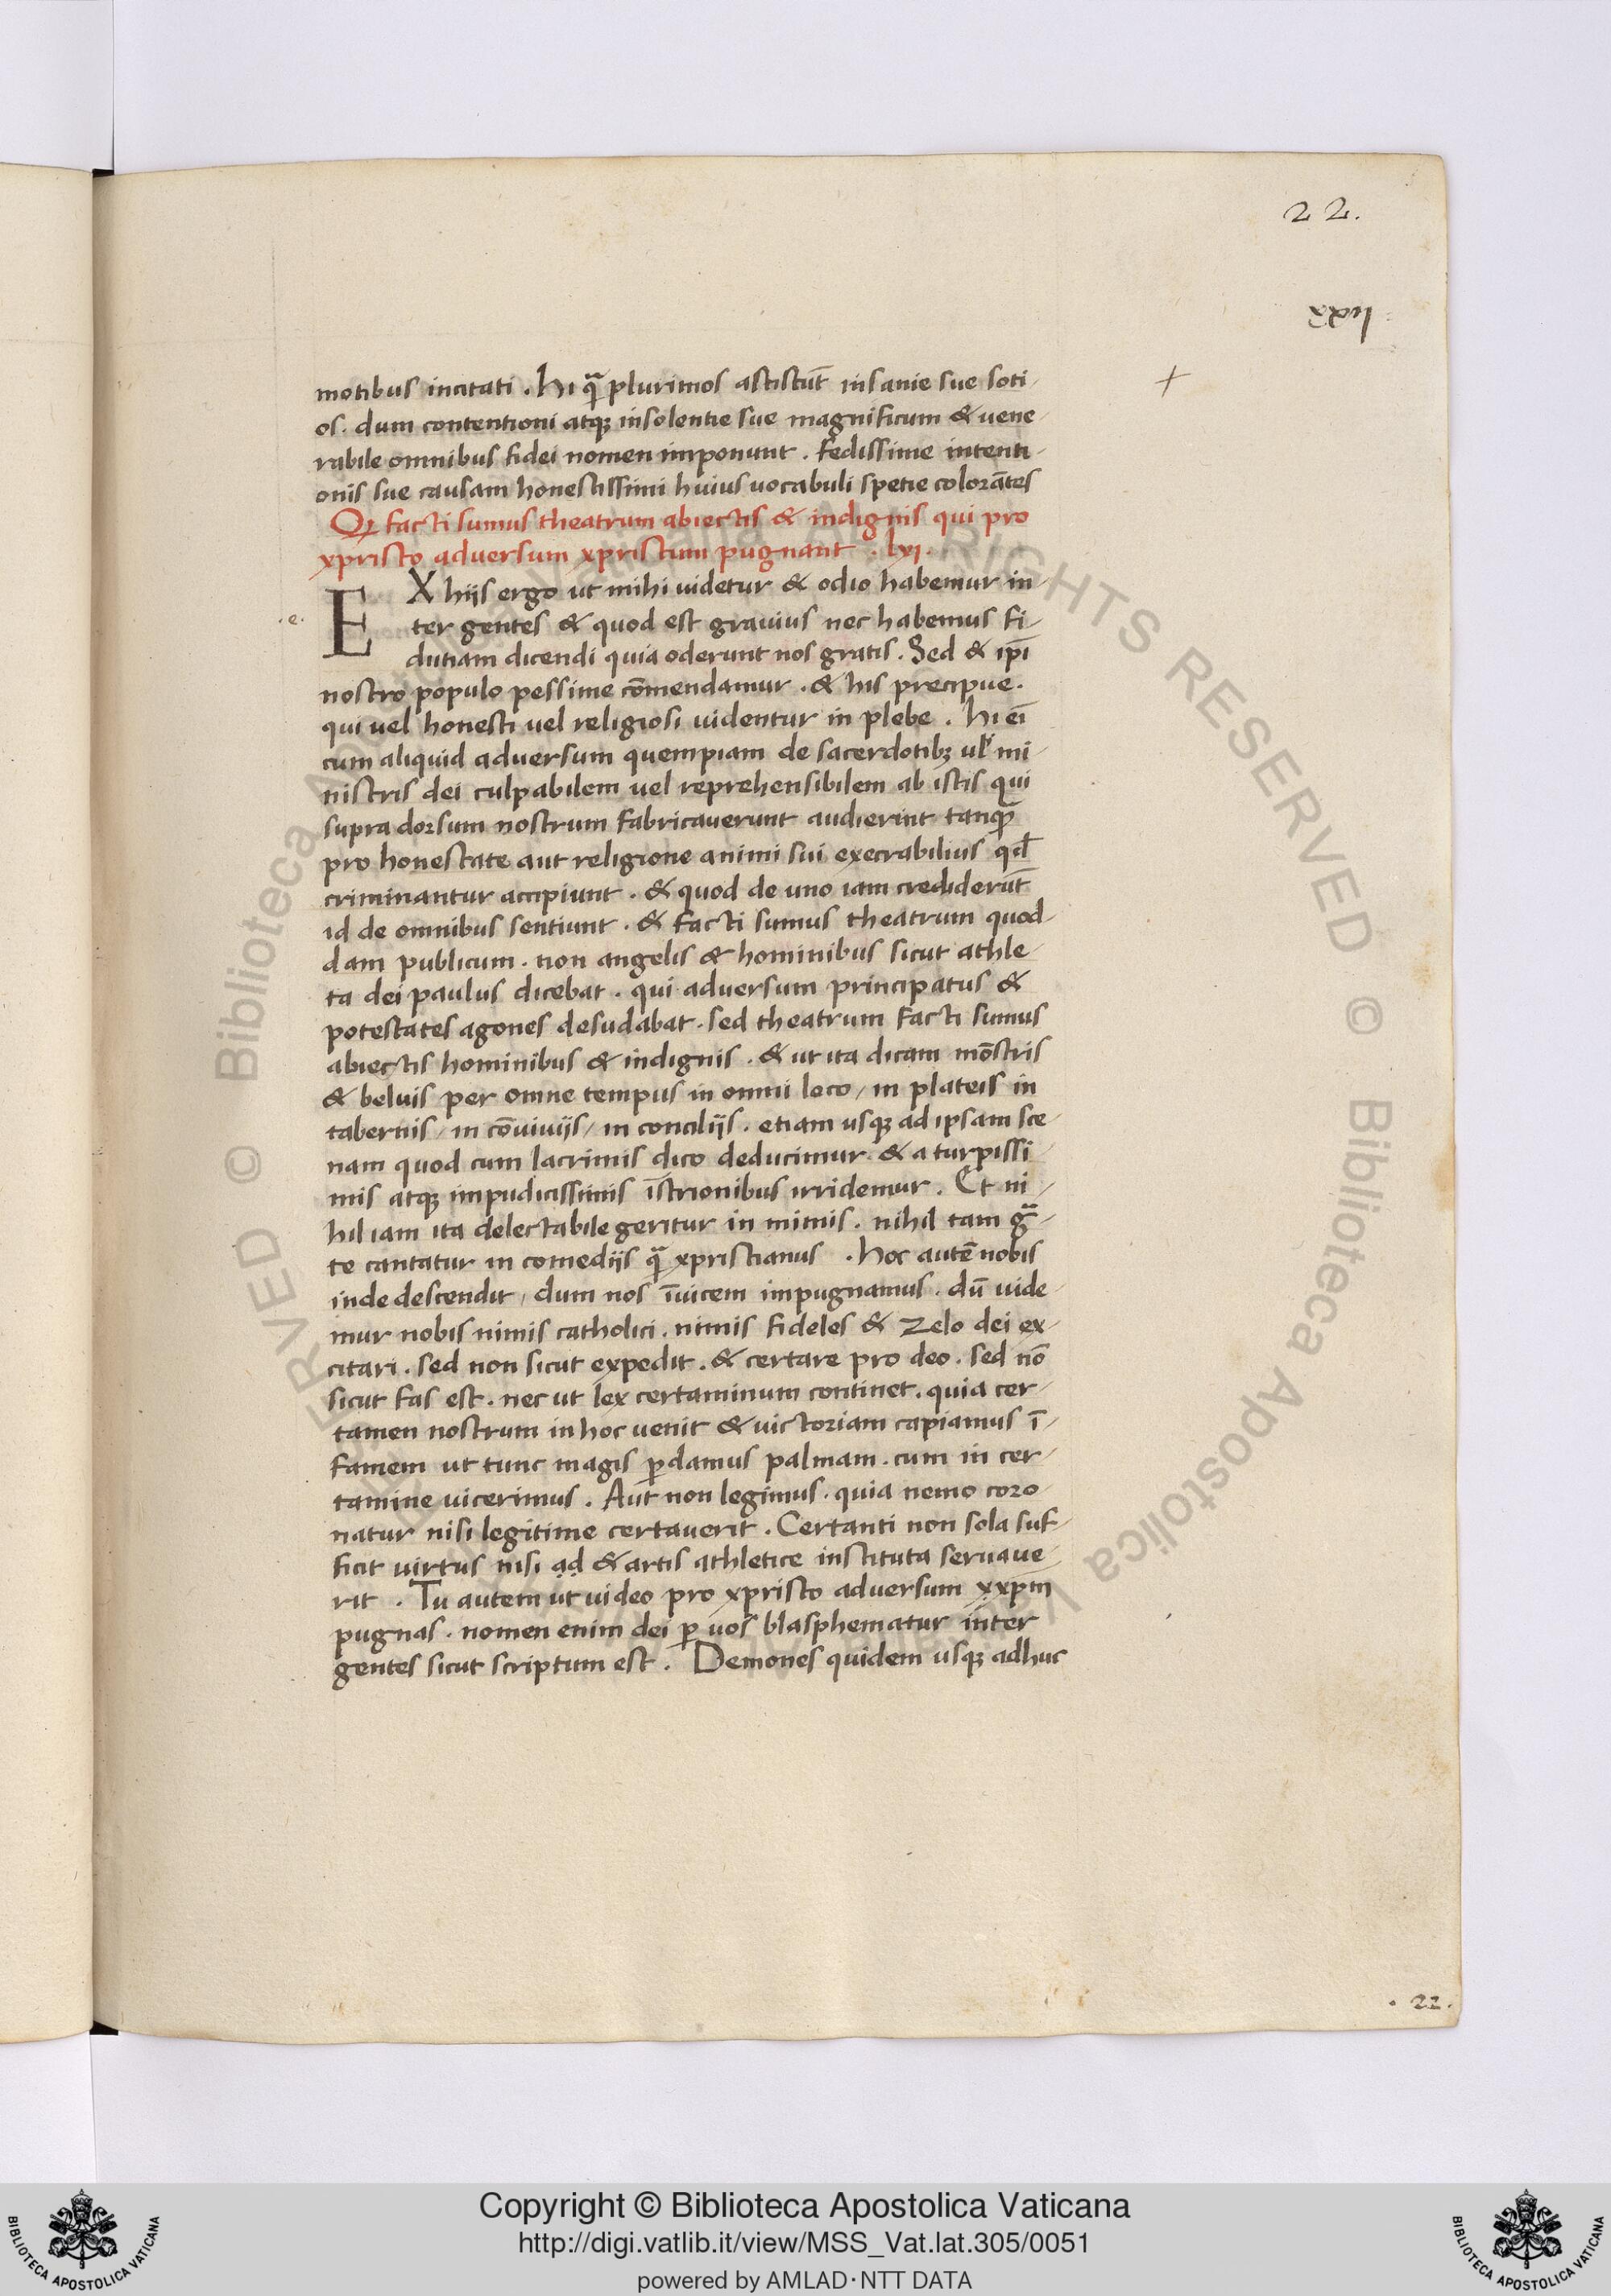 22.
motibus incitati . hi qᷓ plurimos asciscūt insanie sue soti-
os. dum contentioni atqꝫ insolentie sue magnificum & uene-
rabile omnibus fidei nomen imponunt . fedissime intenti-
onis sue causam honestissimi huius uocabuli spetie colorātes
Qꝫ facti sumus theatrum abiectis & indignis qui pro
xpristo adversum xpristum pugnant . lxi.
.e.
EX hijs ergo ut mihi uidetur & odio habemur in-
ter gentes & quod est grauius nec habemus fi-
dutiam dicendi quia oderunt nos gratis . Sed & ipī
nostro populo pessime cōmendamur . & his precipue .
qui vel honesti vel religiosi uidentur in plebe . hi eī
cum aliquid adversum quempiam de sacerdotibꝫ ul' mi-
nistris dei culpabilem vel reprehensibilem ab istis qui
supra dorsum nostrum fabricaverunt audierint tanqᷓ
pro honestate aut religione animi sui execrabilius qd̄
criminantur accipiunt . & quod de uno iam crediderūt
id de omnibus sentiunt . & facti sumus theatrum quod-
dam publicum . non angelis & hominibus sicut athle-
ta dei paulus dicebat . qui adversum principatus &
potestates agones desudabat . sed theatrum facti sumus
abiectis hominibus & indignis . & ut ita dicam mōstris
& beluis per omne tempus in omni loco / in plateis in
tabernis / in cōuiuijs / in concilijs . etiam usqꝫ ad ipsam sce-
nam quod cum lacrimis dico deducimur . & a turpissi-
mis atqꝫ impudicissimis īstrionibus irridemur . Et ni-
hil iam ita delectabile geritur in mimis . nihil tam gᷓ-
te cantatur in comedijs qᷓ xpristianus . hoc autē nobis
inde descendit / dum nos īuicem impugnamus . dū uide-
mur nobis nimis catholici . nimis fideles & zelo dei ex-
citari . sed non sicut expedit . & certare pro deo . sed nō
sicut fas est . nec ut lex certaminum continet . quia cer-
tamen nostrum in hoc uenit & uictoriam capiamus ī-
famem ut tunc magis ꝑdamus palmam . cum in cer-
tamine uicerimus . Aut non legimus . quia nemo coro-
natur nisi legitime certaverit . Certanti non sola suf-
ficit virtus nisi ad & artis athletice instituta servave-
rit . Tu autem ut video pro xpristo adversum xxpm
pugnas . nomen enim dei ꝑ vos blasphematur inter
gentes sicut scriptum est . Demones quidem usqꝫ adhuc
. 22.
© Biblioteca Apostolica Vaticana
ALL RIGHTS RESERVED
Copyright © Biblioteca Apostolica Vaticana
http://digi.vatlib.it/view/MSS_Vat.lat.305/0051
powered by AMLAD·NTT DATA
BIBLIOTECA APOSTOLICA VATICANA
BIBLIOTECA APOSTOLICA VATICANA